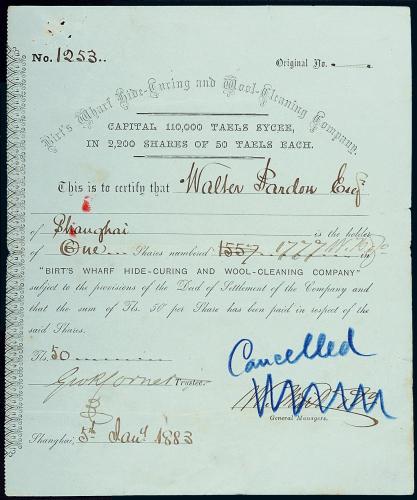 No. 1253..
Original No.
Birt's Wharf Hide-Curing and Wool-Cleaning Company.
CAPITAL 110,000 TAELS SYCEE,
IN 2,200 SHARES OF 50 TAELS EACH.
This is to certify that Walter Pardon Esqr
of Shanghai is the holder
of One Shares numbered 1557 1777 in
"BIRT'S WHARF HIDE-CURING AND WOOL-CLEANING COMPANY"
subject to the provisions of the Deed of Settlement of the Company and
that the sum of Tls. 50 per Share has been paid in respect of the
said Shares.
Tls. 50
Cancelled
Trustee.
General Managers.
Shanghai, 5th Jany 1883